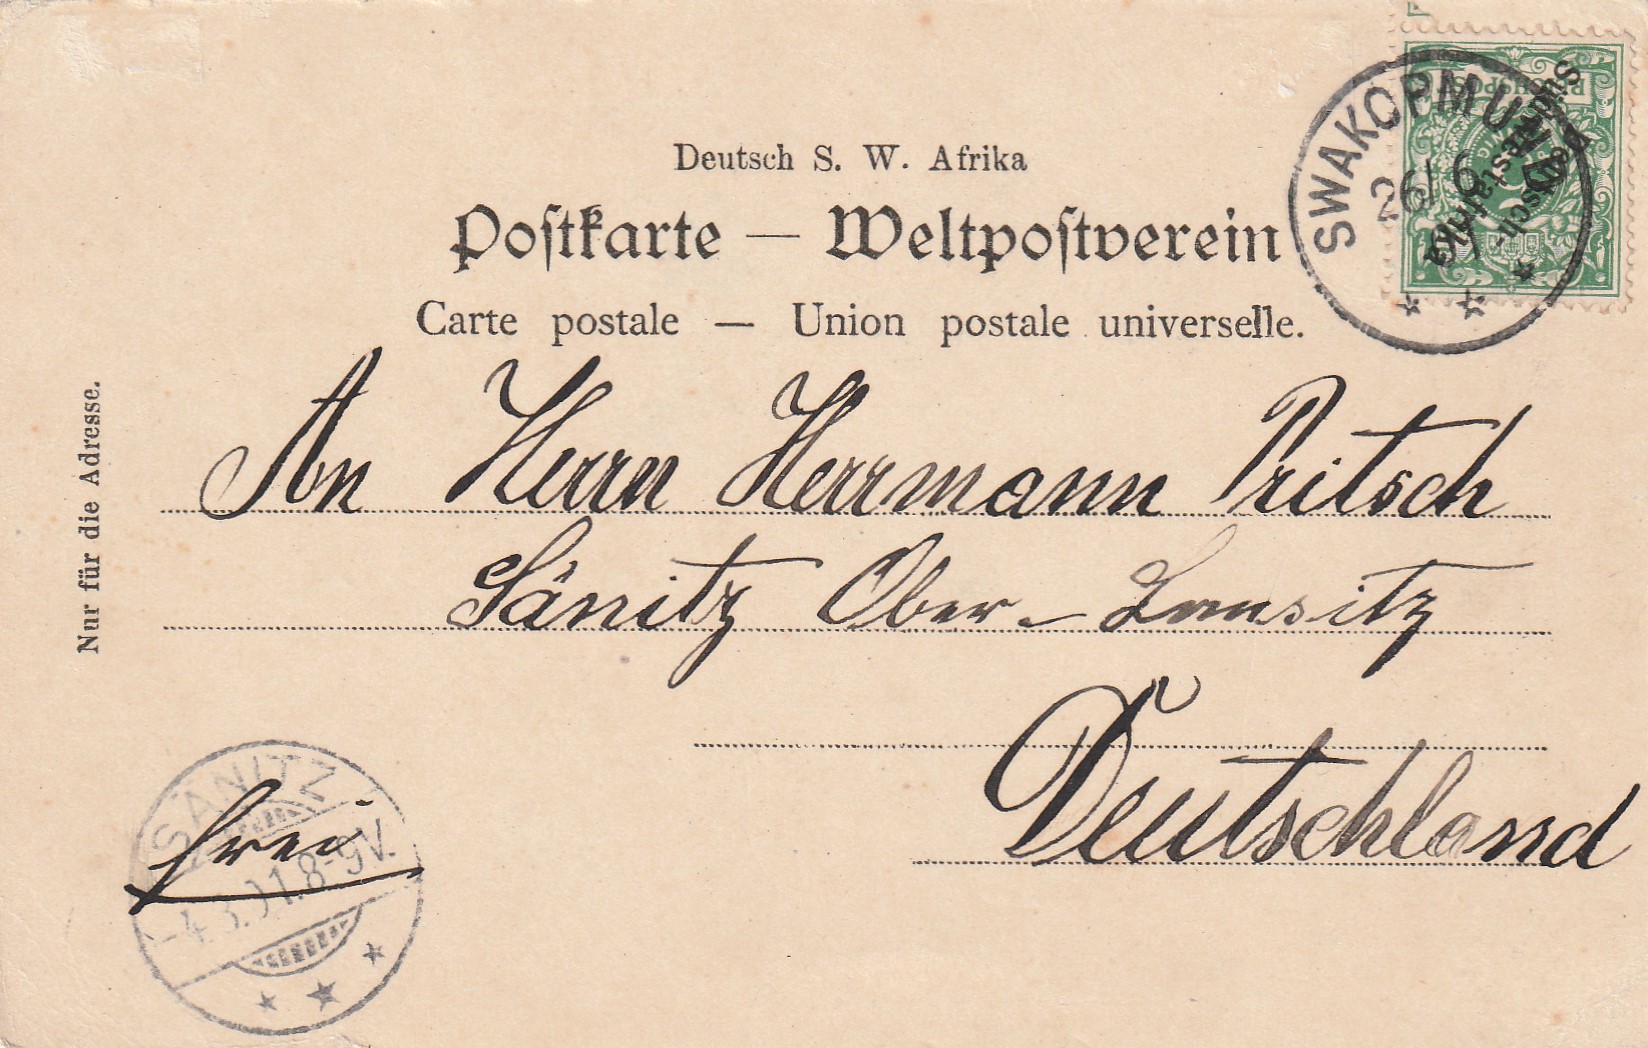 Deutsch S. W. Afrika
Postkarte — Weltpostverein
Carte postale — Union postale universelle.
Nur für die Adresse.
SWAKOPMUND
26/6
REICHSPOST
5
Deutsch-
Südwest-
Afrika
An Herrn Herrmann Pritsch
Sänitz Ober-Lausitz
Deutschland
frei
SÄNITZ
-4.8.01.8-9V.